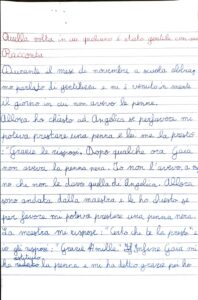 Quella volta in cui qualcuno è stato gentile con me
Racconto
Durante il mese di novembre a scuola abbia-
mo parlato di gentilezza e mi è venuto in mente
il giorno in cui non avevo la penna.
Allora ho chiesto ad Angelica se perfavore mi
poteva prestare una penna e lei me la prestò
"Grazie le risposi. Dopo qualche ora Gaia
non aveva la penna nera. Io non l'avevo,
no che non le davo quella di Angelica. Allora
sono andata dalla maestra e le ho chiesto se
per favore mi poteva prestare una penna nera.
La maestra mi rispose: "Certo che te la presto" e
io gli risposi: "Grazie Infine Gaia mi
ha la penna e mi ha detto grazie per ho